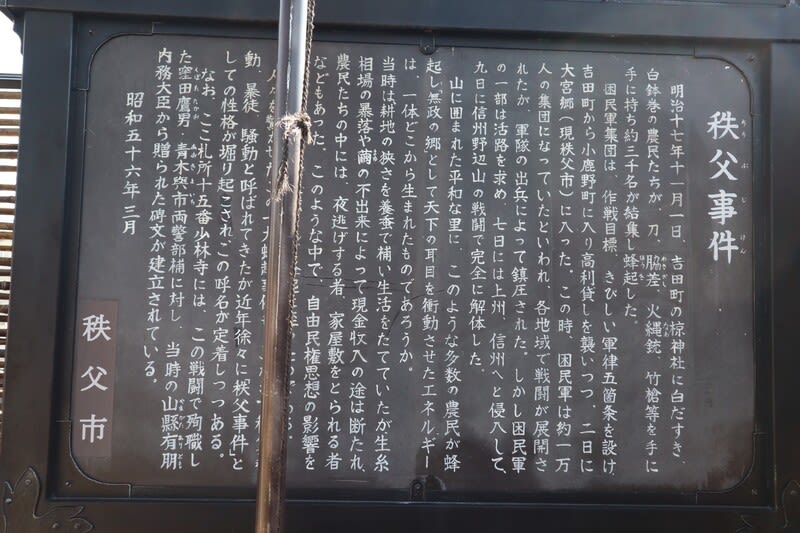 秩父事件
ちちぶじけん
明治十七年十一月一日、吉田町の椋神社に白だすき、
白鉢巻の農民たちが、刀、脇差、火縄銃、竹槍等を手に
手に持ち約三千名が結集し蜂起した。
困民軍集団は、作戦目標、きびしい軍律五箇条を設け、
吉田町から小鹿野町に入り高利貸しを襲いつつ、二日に
大宮郷(現秩父市)に入った。この時、困民軍は約一万
人の集団になっていたといわれ、各地域で戦闘が展開さ
れたが、軍隊の出兵によって鎮圧された。しかし困民軍
の一部は活路を求め、七日には上州、信州へと侵入して、
九日に信州野辺山の戦闘で完全に解体した。
山に囲まれた平和な里に、このような多数の農民が蜂
起し無政の郷として天下の耳目を衝動させたエネルギー
は、一体どこから生まれたものであろうか。
当時は耕地の狭さを養蚕で補い生活をたてていたが生糸
相場の暴落や繭の不出来によって現金収入の途は断たれ、
農民たちの中には、夜逃げする者、家屋敷をとられる者
などもあった。このような中で、自由民権思想の影響を
動、暴徒、騒動と呼ばれてきたが近年徐々に秩父事件」と
しての性格が掘り起こされこの呼名が定着しつつある。
なお、ここ札所十五番少林寺には、この戦闘で殉職し
た窪田鷹男、青木與市両警部補に対し、当時の山縣有朋
内務大臣から贈られた碑文が建立されている。
昭和五十六年三月
秩父市